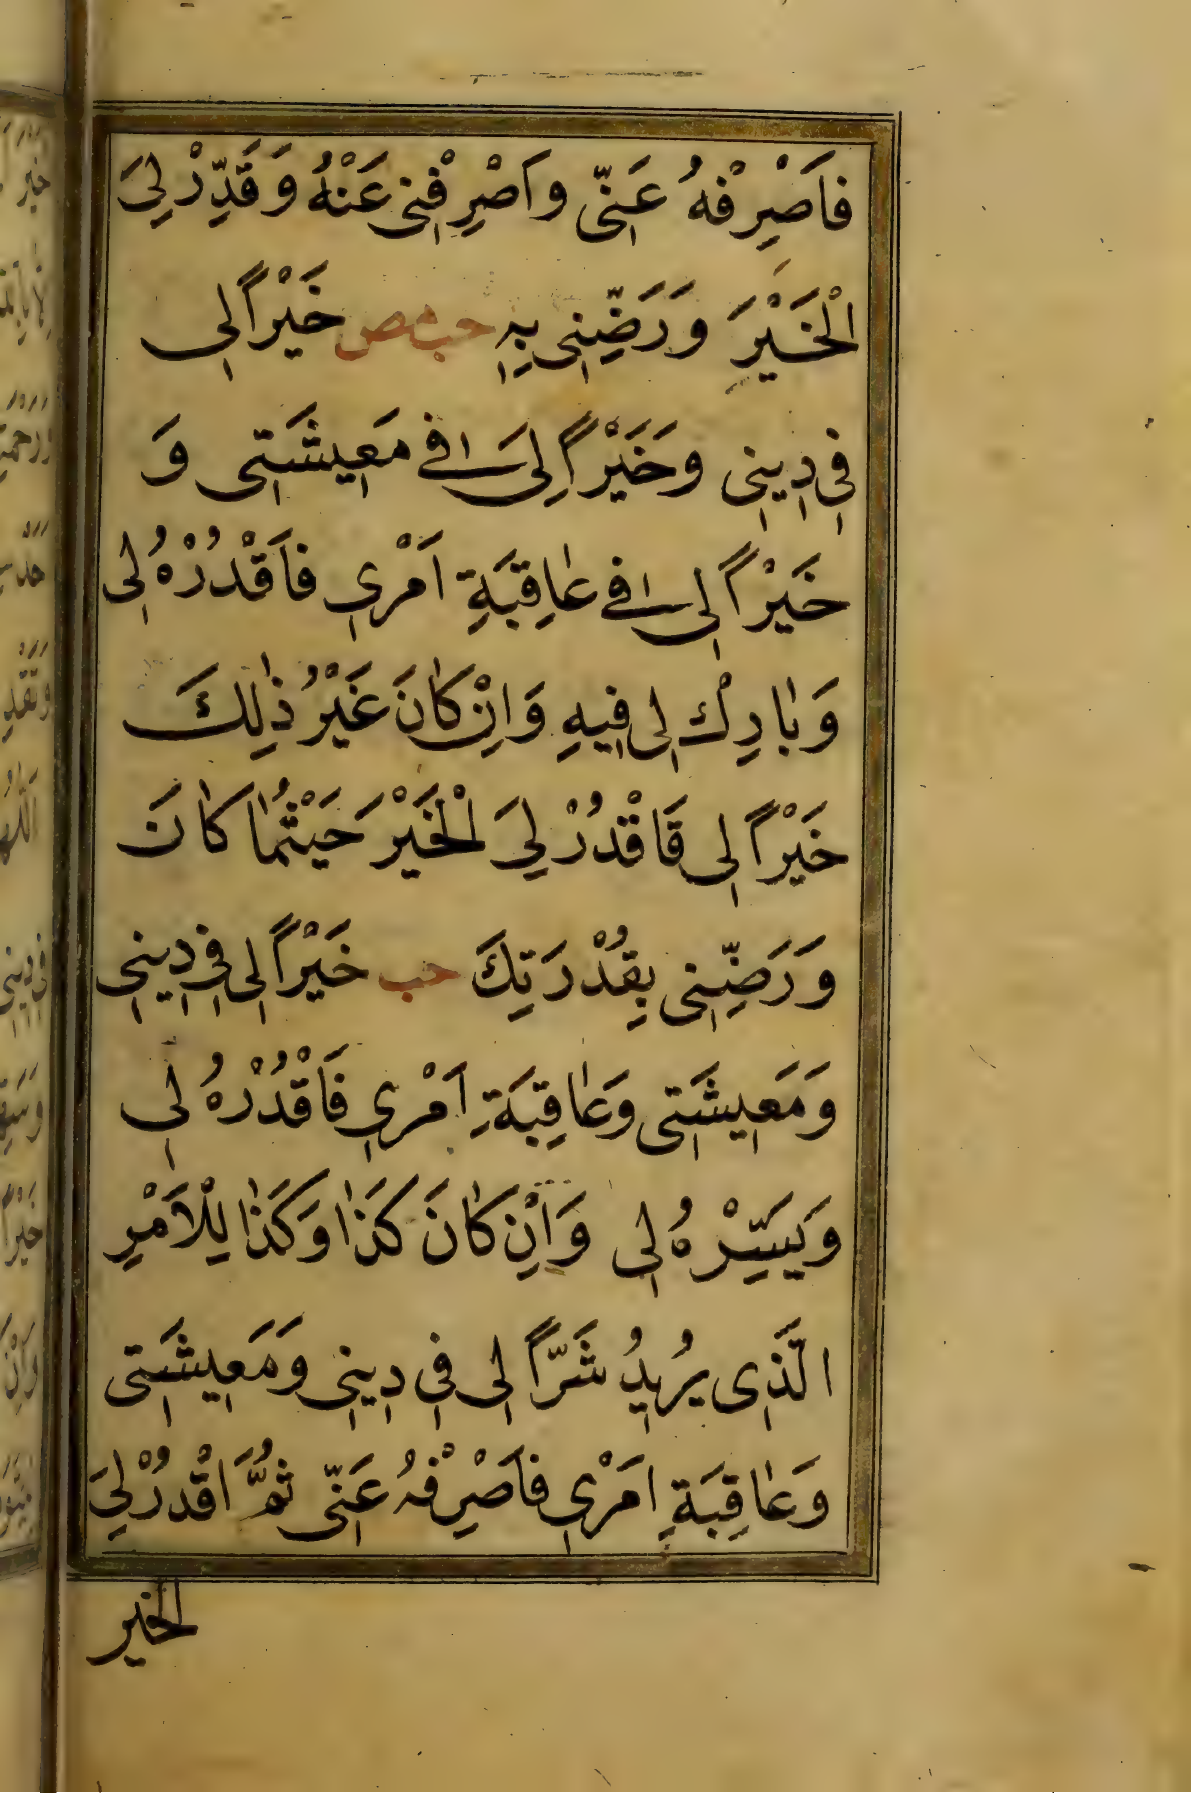 فَاَصْرِفْهُ عَنِّى وَاَصْرِفْنِى عَنْهُ وَقَدِّرْ لِىَ
الْخَيْرَ وَرَضِّنِى بِهِ حب مص خَيْرًا لِى
فِى دِينِى وَخَيْرًا لِىَ ا فِى مَعِيشَتِى وَ
خَيْرًا لِى ا فِى عَاقِبَةِ اَمْرِى فَاَقْدُرْهُ لِى
وَبَارِكْ لِى فِيهِ وَاِنْ كَانَ غَيْرُ ذٰلِكَ
خَيْرًا لِى فَاقْدُرْ لِىَ الْخَيْرَ حَيْثُمَا كَانَ
وَرَضِّنِى بِقُدْرَتِكَ حب خَيْرًا لِى فِى دِينِى
وَمَعِيشَتِى وَعَاقِبَةِ اَمْرِى فَاَقْدُرْهُ لِى
وَيَسِّرْهُ لِى وَاِنْ كَانَ كَذَا وَكَذَا لِلْاَمْرِ
الَّذِى يُرِيدُ شَرًّا لِى فِى دِينِى وَمَعِيشَتِى
وَعَاقِبَةِ اَمْرِى فَاَصْرِفْهُ عَنِّى ثُمَّ اَقْدُرْ لِىَ
الخير